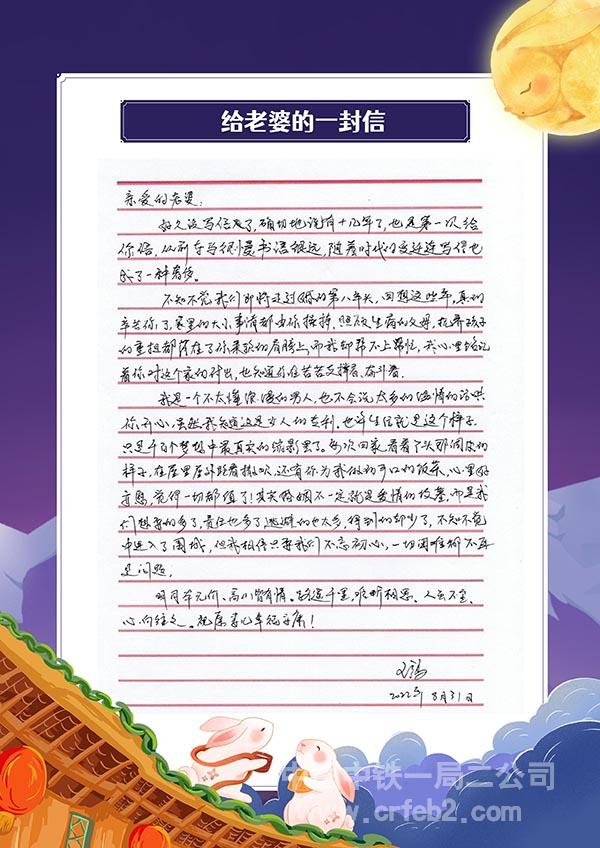 给老婆的一封信
亲爱的老婆：
好久没写信了，确切地说有十几年了，也是第一次给
你信，从前车马很慢书信很远，随着时代的变迁连写信也
成了一种奢侈。
不知不觉我们即将走过婚的第八年头，回想这些年，真的
辛苦你了，家里的大小事情都由你操持，照顾生病的父母，抚养孩子
的重担都落在了你柔软的肩膀上，而我却帮不上帮忙，我心里铭记
着你对这个家的付出，也知道你在苦苦支撑着、奋斗着。
我是一个不太懂浪漫的男人，也不会说太多的温情的话哄
你开心，虽然我知道这是女人的专利。也许生活就是这个样子，
只是千百个梦想中最真实的缩影罢了。每次回家看着丫头那调皮的
样子，在屋里屋外跑着撒欢，还有你为我做的可口的饭菜，心里好
幸福，觉得一切都值了！其实婚姻不一定就是爱情的坟墓，而是我
们想要的多了，责任也多了，逃避的也太多，得到的却少了，不知不觉
中进入了围城，但我相信只要我们不忘初心，一切困难都不再
是问题。
明月本无价，高山皆有情。路遥千里，难断相思。人虽不至，
心向往之。祝愿老婆幸福安康！
2022年8月31日
中铁一局二公司
www.crfeb2.com